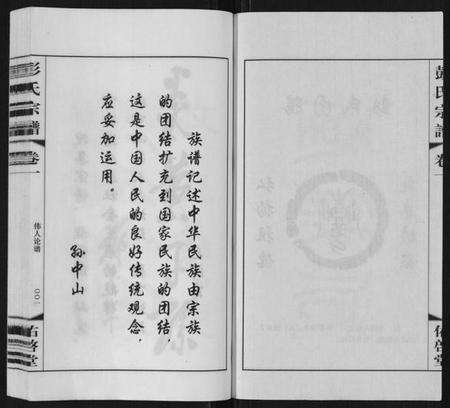 彭氏宗譜
卷一
伟人论谱
〇〇一
佑啓堂
族谱记述中华民族由宗族
的团结扩充到国家民族的团结，
这是中国人民的良好传统观念，
应妥加运用。
孙中山
彭氏宗譜
卷一
佑啓堂